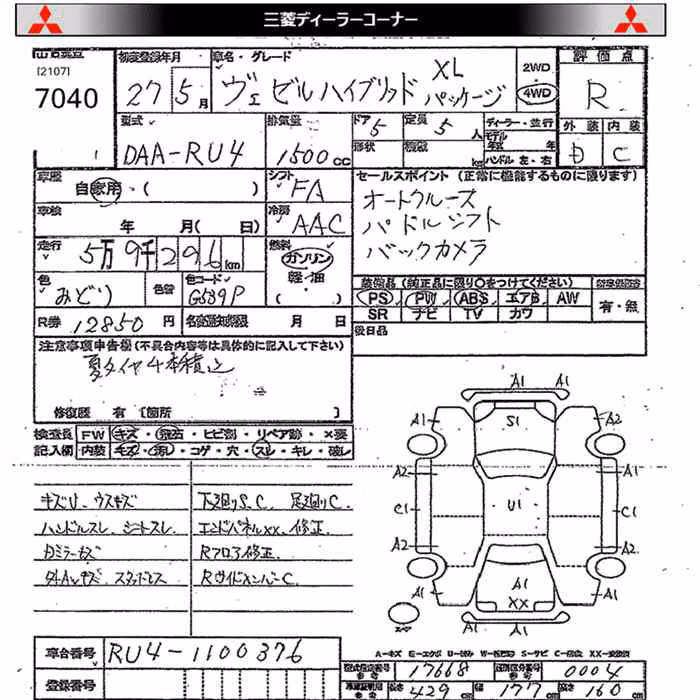 三菱ディーラーコーナー
[2107]
7040
初度登録年月
27年5月
車名・グレード
ヴェゼルハイブリッド XLパッケージ
2WD
4WD
評価点
R
型式
DAA-RU4
排気量
1500cc
ドア 5
定員 5人
形状
ディーラー・並行
モデル年式 年
ハンドル 左・右
外装 内装
D C
車歴
自家用・( )
シフト
FA
セールスポイント (正常に機能するものに限ります)
オートクルーズ
パドルシフト
バックカメラ
車検
年 月( 日)
冷房
AAC
走行
5万9千296km
燃料
ガソリン
軽・油
( )
色
みどり
色替
色コード
G539P
装備品(純正品に限り○をつけてください)
PS PW ABS エアB AW
SR ナビ TV カワ
有・無
R券 12850円
名変通知期限 月 日
後日品
注意事項申告欄(不具合内容等は具体的に記入して下さい)
夏タイヤ4本積込
修復歴 有 [箇所 ]
検査員 FW キズ・飛石・ヒビ割・リペア跡・×要
記入欄 内装 キズ・汚レ・コゲ・穴・スレ・キレ・破レ
キズU、ウスキズ 下廻りS、C 足廻りC
ハンドルスレ シートスレ エンドパネルXX、修正
Rフロア修正
スタッドレス RサイドメンバーC
A1 A1
A1 S1 A2
A2 A1
C1 U1 C1
A2 A2
A1 A1 A1
XX
A1 A1
スペア
車台番号 RU4-1100376
登録番号
A-キズ E-エクボ U-凹み W-板金跡 S-サビ C-腐食 XX-交換済
型式指定番号 参考 17668 類別区分番号 参考 0004
長さ 429cm 幅 177cm 高さ 160cm